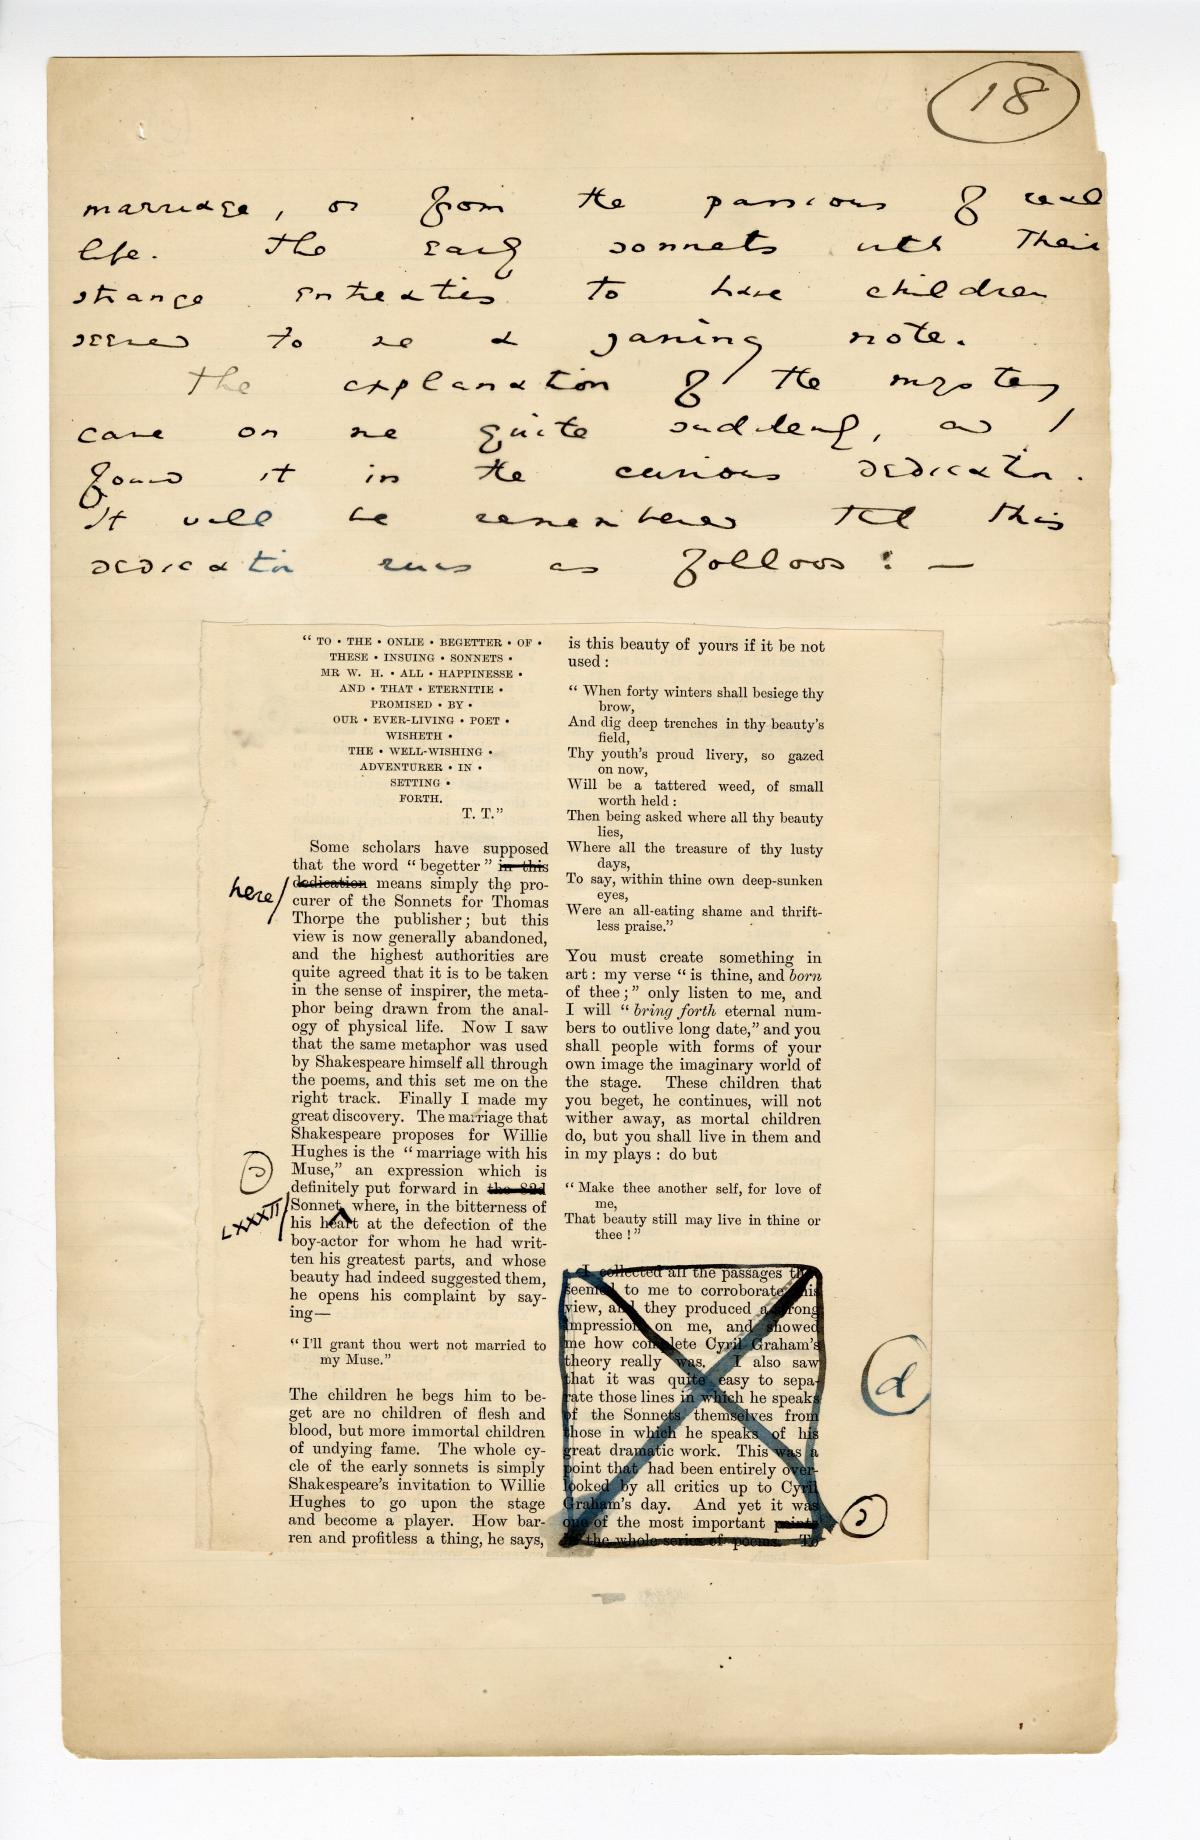 18
marriage, or from the passions of real
life. The early sonnets with their
strange entreaties to have children
seemed to me a jarring note.
The explanation of the mystery
came on me quite suddenly, and I
found it in the curious dedication.
It will be remembered that this
dedication runs as follows : —
“ TO • THE • ONLIE • BEGETTER • OF •
THESE • INSUING • SONNETS •
MR W. H. • ALL • HAPPINESSE •
AND • THAT • ETERNITIE •
PROMISED • BY •
OUR • EVER-LIVING • POET •
WISHETH •
THE • WELL-WISHING •
ADVENTURER • IN •
SETTING •
FORTH.
T. T.”
Some scholars have supposed
that the word “ begetter ” in this
here/
dedication means simply the pro-
curer of the Sonnets for Thomas
Thorpe the publisher ; but this
view is now generally abandoned,
and the highest authorities are
quite agreed that it is to be taken
in the sense of inspirer, the meta-
phor being drawn from the anal-
ogy of physical life. Now I saw
that the same metaphor was used
by Shakespeare himself all through
the poems, and this set me on the
right track. Finally I made my
great discovery. The marriage that
Shakespeare proposes for Willie
Hughes is the “ marriage with his
Muse,” an expression which is
definitely put forward in the 82d
LXXXII/
Sonnet, where, in the bitterness of
his heart at the defection of the
boy-actor for whom he had writ-
ten his greatest parts, and whose
beauty had indeed suggested them,
he opens his complaint by say-
ing—
“ I’ll grant thou wert not married to
my Muse.”
The children he begs him to be-
get are no children of flesh and
blood, but more immortal children
of undying fame. The whole cy-
cle of the early sonnets is simply
Shakespeare’s invitation to Willie
Hughes to go upon the stage
and become a player. How bar-
ren and profitless a thing, he says,
is this beauty of yours if it be not
used :
“ When forty winters shall besiege thy
brow,
And dig deep trenches in thy beauty’s
field,
Thy youth’s proud livery, so gazed
on now,
Will be a tattered weed, of small
worth held :
Then being asked where all thy beauty
lies,
Where all the treasure of thy lusty
days,
To say, within thine own deep-sunken
eyes,
Were an all-eating shame and thrift-
less praise.”
You must create something in
art : my verse “ is thine, and born
of thee ; ” only listen to me, and
I will “ bring forth eternal num-
bers to outlive long date,” and you
shall people with forms of your
own image the imaginary world of
the stage. These children that
you beget, he continues, will not
wither away, as mortal children
do, but you shall live in them and
in my plays : do but
“ Make thee another self, for love of
me,
That beauty still may live in thine or
thee ! ”
I collected all the passages that
seemed to me to corroborate this
view, and they produced a strong
impression on me, and showed
me how complete Cyril Graham’s
theory really was. I also saw
that it was quite easy to sepa-
rate those lines in which he speaks
of the Sonnets themselves from
those in which he speaks of his
great dramatic work. This was a
point that had been entirely over-
looked by all critics up to Cyril
Graham’s day. And yet it was
one of the most important points
in the whole series of poems. To
d